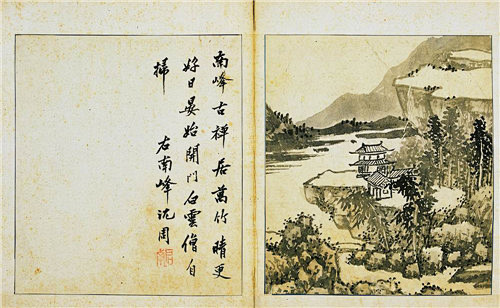 南峰古禅居萬竹晴更
好日晏始開門白雲僧自
掃
右南峰沈周